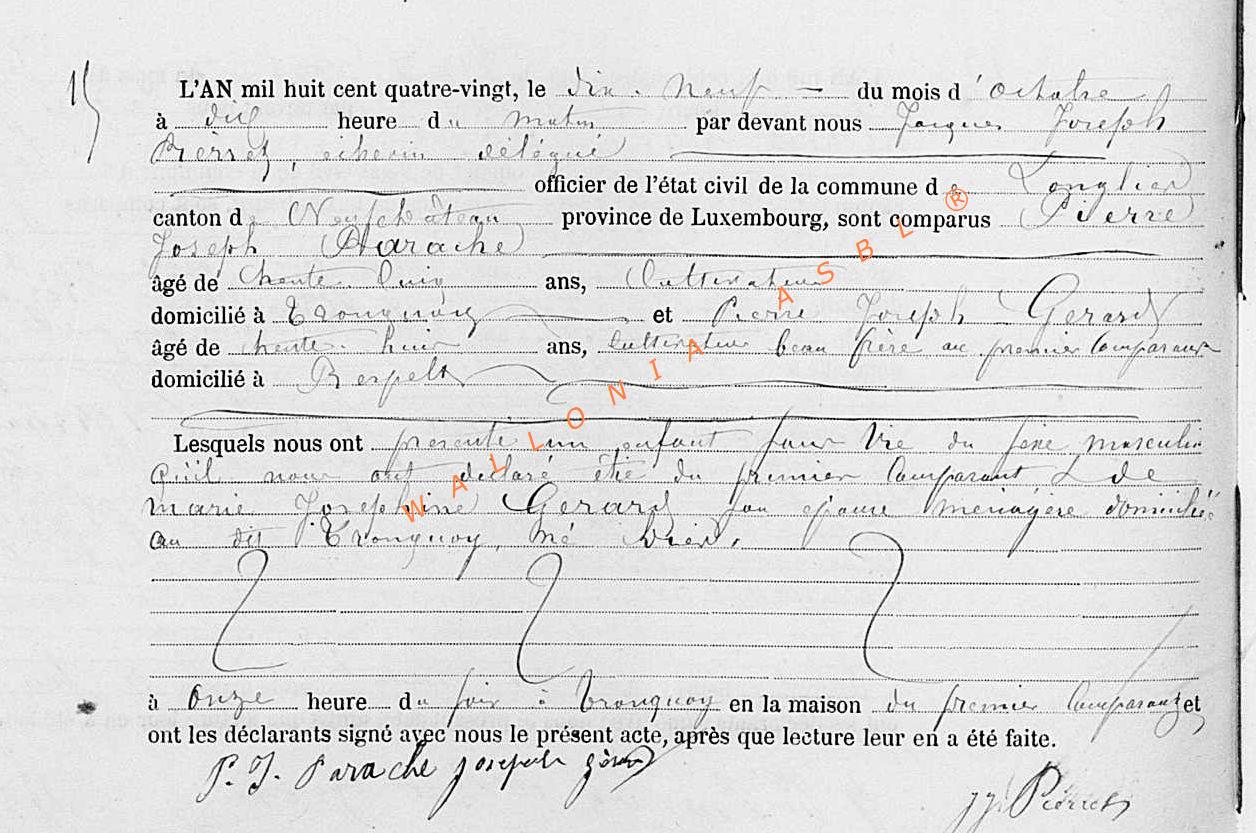 15
L'AN mil huit cent quatre-vingt, le dix-Neuf du mois d'octobre
à dix heure du matin par devant nous Jacques Joseph
Pierret, échevin délégué
officier de l'état civil de la commune de Longlier
canton de Neufchâteau province de Luxembourg, sont comparus Pierre
Joseph Parache
âgé de trente cinq ans, Cultivateur
domicilié à Tronquoy et Pierre Joseph Gerard
âgé de trente huit ans, Cultivateur beau frère au premier Comparant
domicilié à Respelt
Lesquels nous ont presenté un enfant sans Vie du sexe masculin
Qu'il nous ont declaré être du premier Comparant & de
marie Josephine Gerard son épouse menagère domiciliée
au dit Tronquoy, né hier,
à Onze heure du soir à Tronquoy en la maison du premier Comparant et
ont les déclarants signé avec nous le présent acte, après que lecture leur en a été faite.
P. J. Parache joseph gérard
JJ. Pierret
WALLONIA ASBL ®